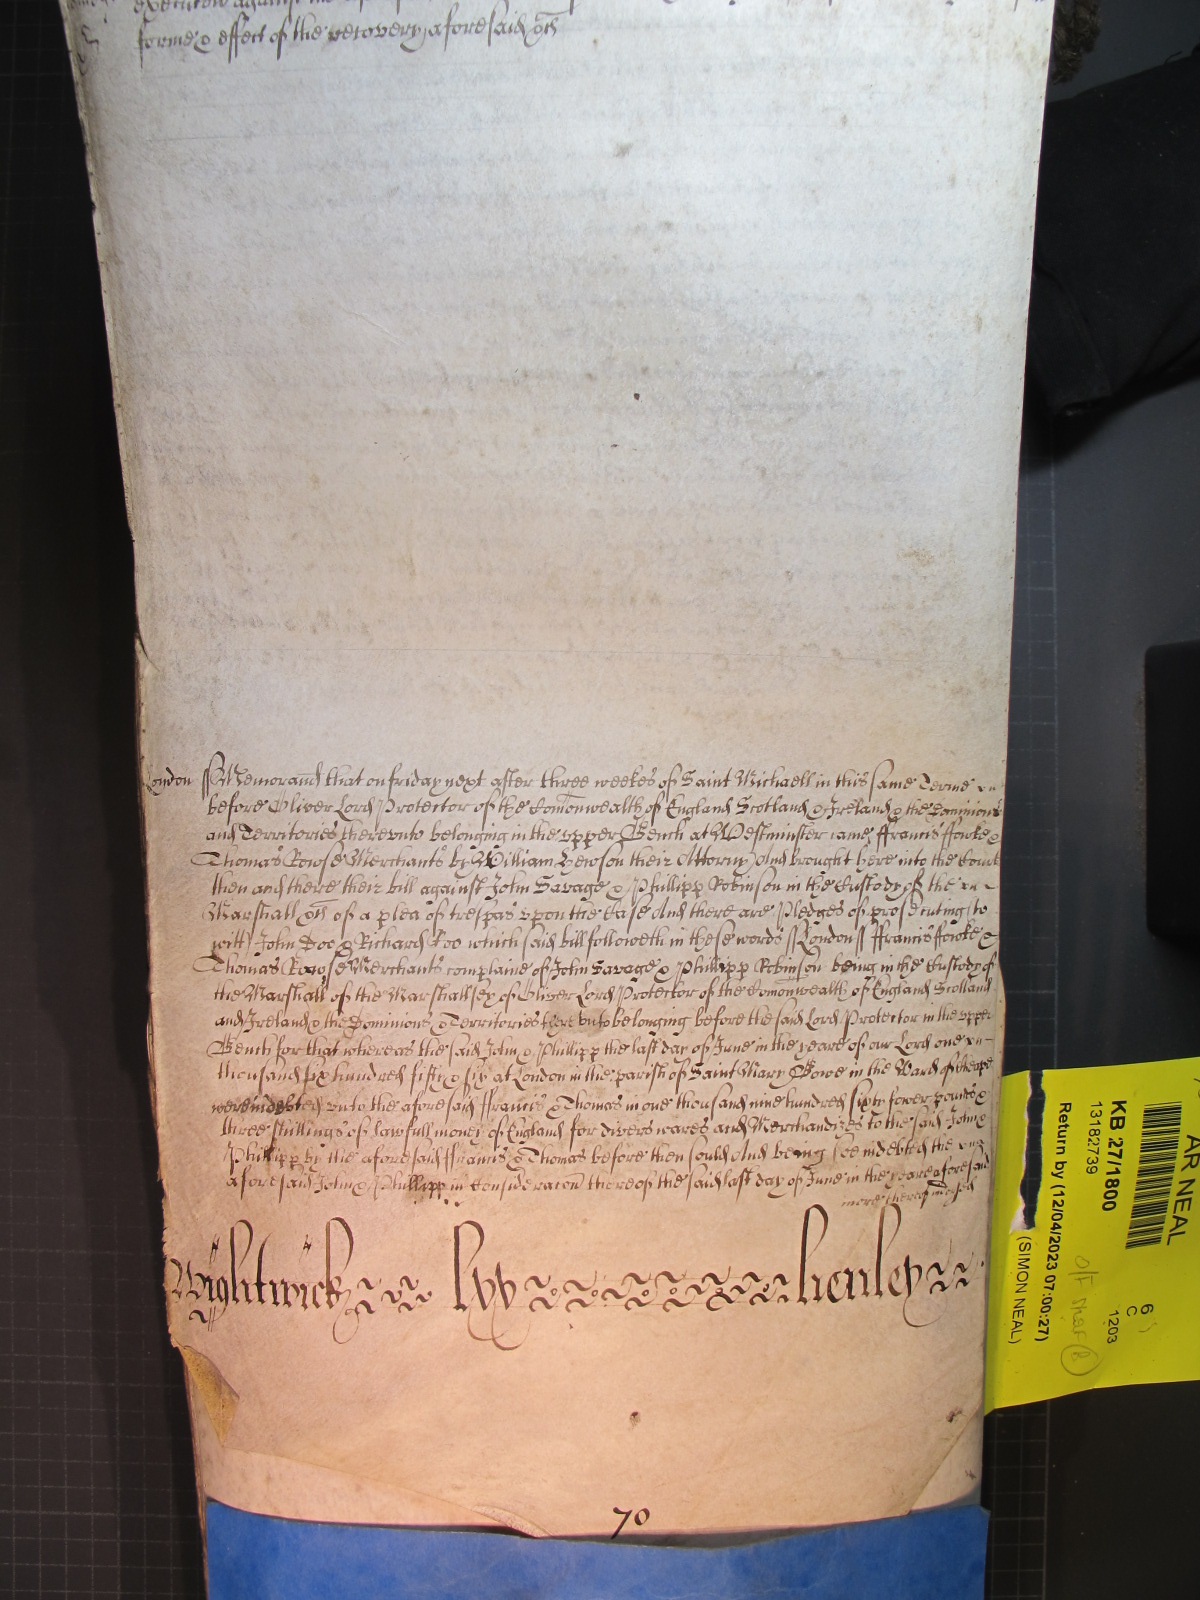 forme & effect of the recovery aforesaid &c
London ss Memorand that on friday next after three weekes of Saint Michaell in this same Terme
before Oliver Lord Protector of the Comonwealth of England Scotland & Ireland & the Dominions
and Territories thereunto belonging in the upper Bench at Westminster came ffrancis ffowke &
Thomas Rowse Merchants by William Hewson their Attorny And brought here into the Court
then and there their bill against John Savage & Phillipp Robinson in the Custody of the
Marshall &c of a plea of trespas upon the Case And there are Pledges of prosecuting to
witt John Doo & Richard Roo which said bill followeth in these words ss London ss ffrancis ffowke &
Thomas Rowse Merchants complaine of John Savage & Phillipp Robinson being in the Custody of
the Marshall of the Marshallsey of Oliver Lord Protector of the Comonwealth of England Scotland
and Ireland & the Dominions & Territories thereunto belonging before the said Lord Protector in the upper
Bench for that whereas the said John & Phillipp the last day of June in the yeare of our Lord one
thousand six hundred fifty & six at London in the parish of Saint Mary Bowe in the Ward of Cheape
were indebted unto the aforesaid ffrancis & Thomas in one thousand nine hundred sixty fower pounds &
three shillings of lawfull money of England for divers wares and Merchandizes to the said John &
Phillipp by the aforesaid ffrancis & Thomas before then sould And being soe indebted the
aforesaid John & Phillipp in Consideracon thereof the said last day of June in the yeare aforesaid
more thereof indosed
Wightwick lxx henley
70
AR NEAL
KB 27/1800
13182739
Return by (12/04/2023 07:00:27)
(SIMON NEAL)
6
C
1203